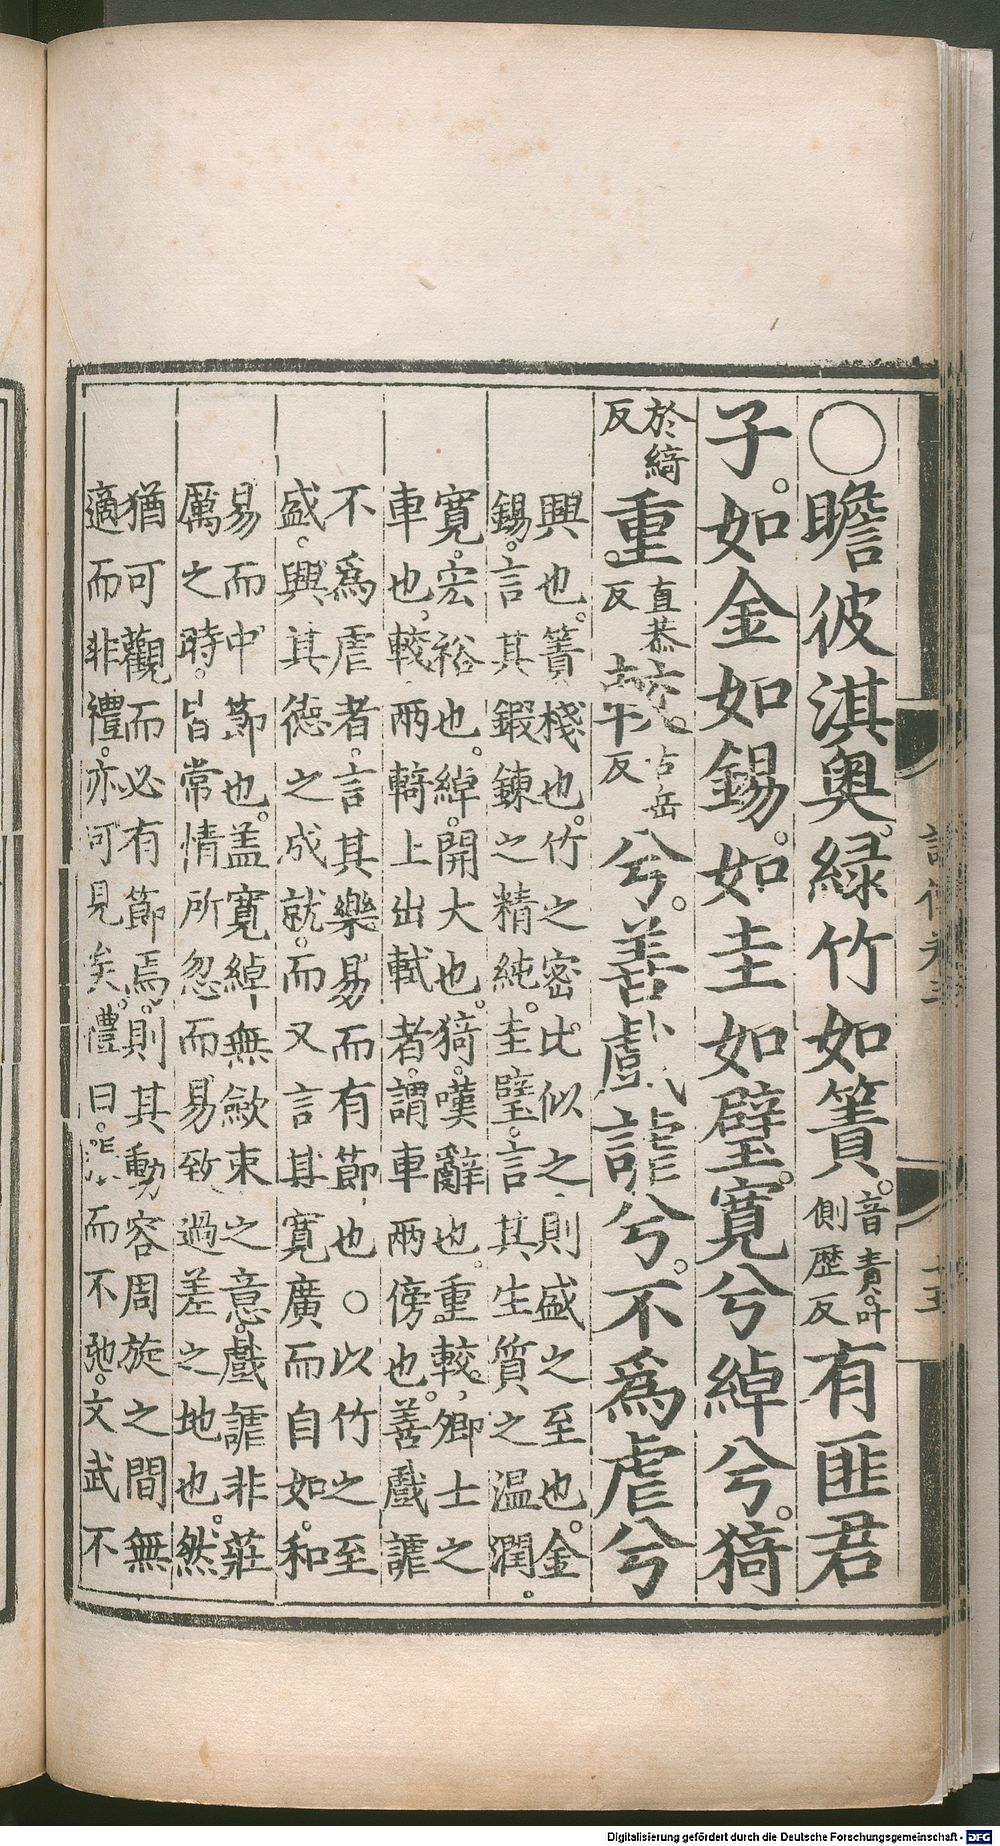 ○瞻彼淇奧。綠竹如簀。音責叶側歷反有匪君
子。如金如錫。如圭如璧。寬兮綽兮。猗
於綺反重。直恭反較。古岳反兮。善戲謔兮。不為虐兮
興也。簀棧也。竹之密比似之則盛之至也。金
錫。言其鍛鍊之精純。圭璧。言其生質之温潤。
寬。宏裕也。綽。開大也。猗。嘆辭也。重較。卿士之
車也。較兩輢上出軾者。謂車兩傍也。善戲謔
不為虐者。言其樂易而有節也○以竹之至
盛。興其德之成就。而又言其寬廣而自如。和
易而中節也。盖寬綽無斂束之意。戲謔非莊
厲之時。皆常情所忽而易致過差之地也。然
猶可觀而必有節焉。則其動容周旋之間無
適而非禮。亦可見矣。禮曰。而不弛。文武不
Digitalisierung gefördert durch die Deutsche Forschungsgemeinschaft - DFG